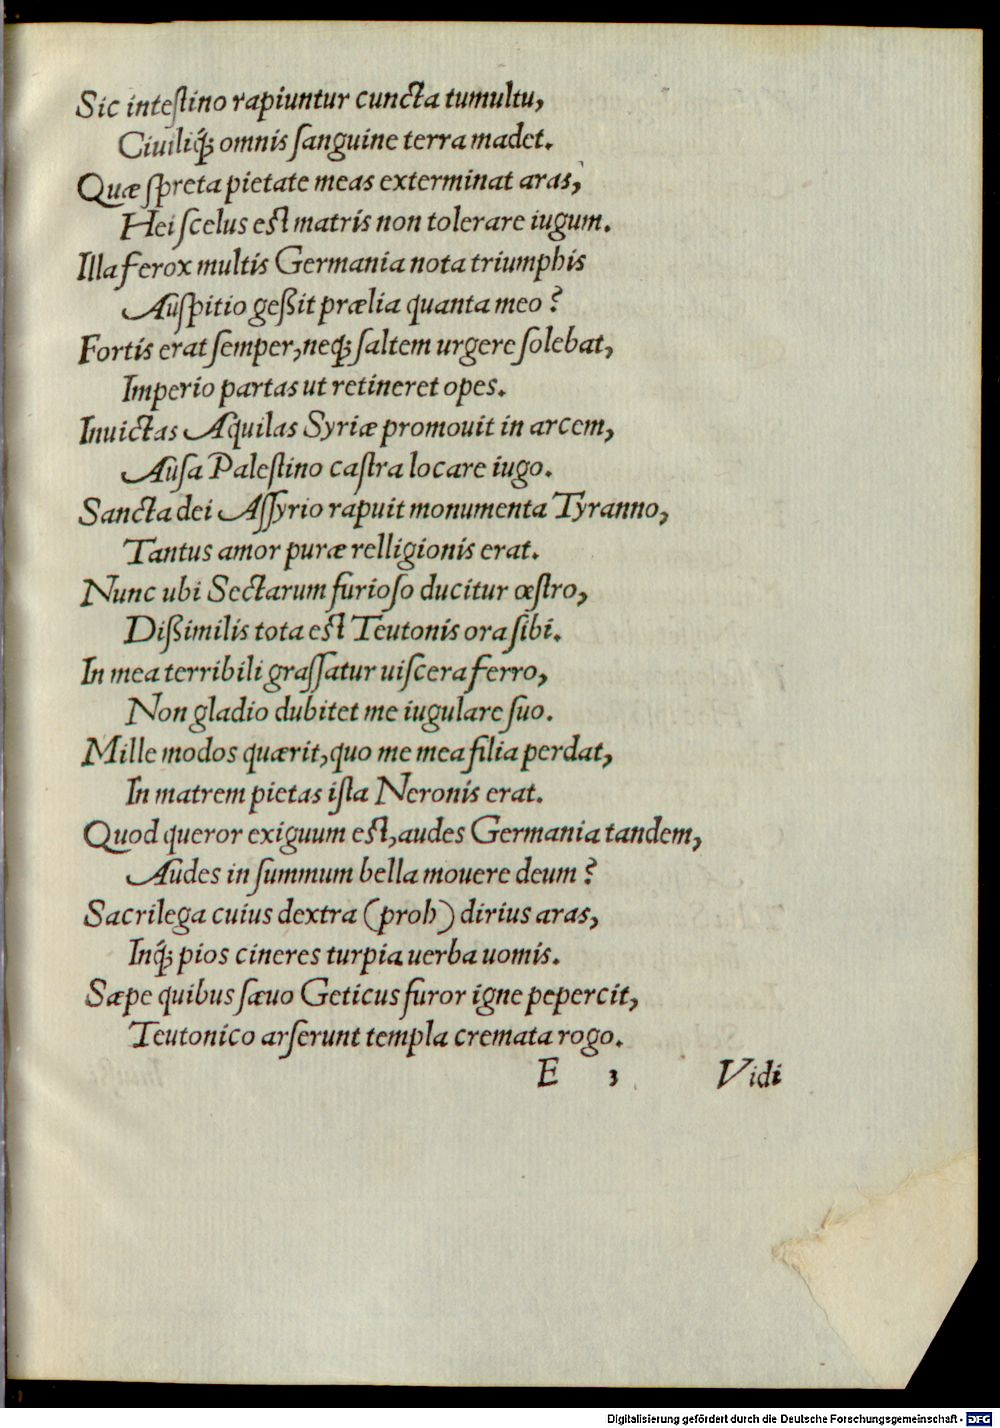 Sic inteſtino rapiuntur cuncta tumultu,
Ciuiliq́; omnis ſanguine terra madet.
Quæ ſpreta pietate meas exterminat aras,
Hei ſcelus eſt matris non tolerare iugum.
Illa ferox multis Germania nota triumphis
Auſpitio geßit prælia quanta meo?
Fortis erat ſemper, neq; ſaltem urgere ſolebat,
Imperio partas ut retineret opes.
Inuictas Aquilas Syriæ promouit in arcem,
Auſa Paleſtino caſtra locare iugo.
Sancta dei Aſſyrio rapuit monumenta Tyranno,
Tantus amor puræ relligionis erat.
Nunc ubi Sectarum furioſo ducitur œſtro,
Dißimilis tota eſt Teutonis ora ſibi.
In mea terribili graſſatur uiſcera ferro,
Non gladio dubitet me iugulare ſuo.
Mille modos quærit, quo me mea filia perdat,
In matrem pietas iſta Neronis erat.
Quod queror exiguum eſt, audes Germania tandem,
Audes in ſummum bella mouere deum?
Sacrilega cuius dextra (proh) dirius aras,
Inq́; pios cineres turpia uerba uomis.
Sæpe quibus ſæuo Geticus furor igne pepercit,
Teutonico arſerunt templa cremata rogo.
E 3 Vidi
Digitalisierung gefördert durch die Deutsche Forschungsgemeinschaft - DFG